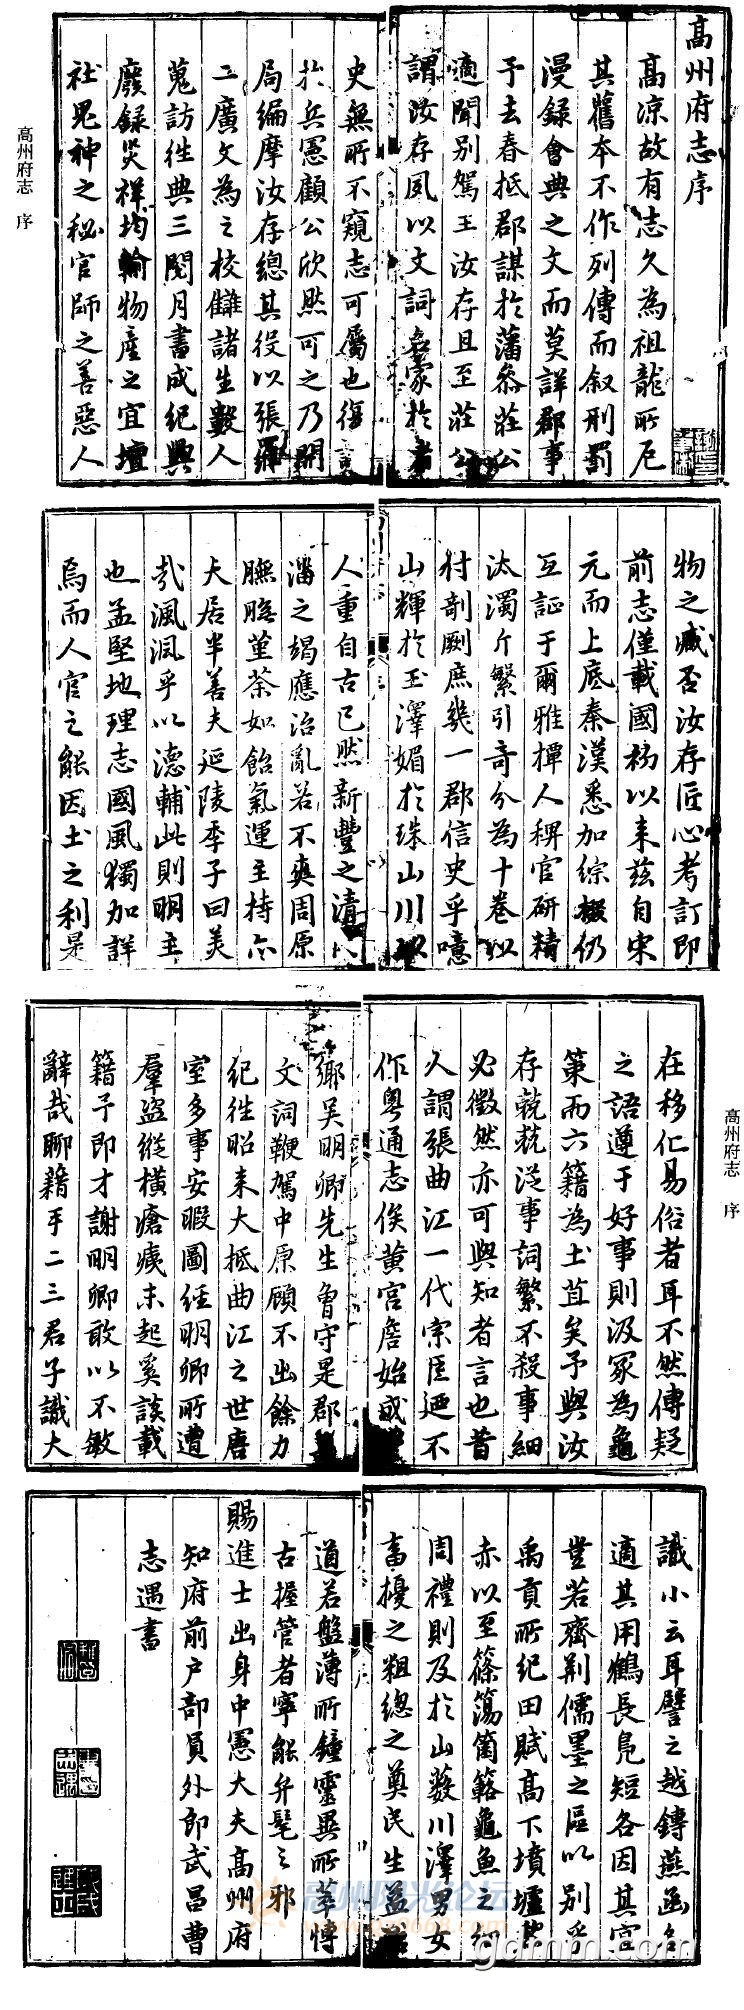 高州府志序
高凉故有志久為祖龍所厄
其舊本不作列傳而叙刑罰
漫録會典之文而莫詳郡事
予去春抵郡謀扵藩叅莊公
適聞別駕王汝存且至莊公
謂汝存夙以文詞名家扵書
史無所不窺志可屬也復
扵兵憲顧公欣然可之乃開
局編摩汝存總其役以張
二廣文為之校讎諸生數人
蒐訪徃典三閱月書成紀輿
廢録災祥均輸物産之宜壇
社鬼神之秘官師之善惡人
高州府志 序
物之臧否汝存匠心考訂即
前志僅載國初以来兹自宋
元而上底秦漢悉加綜緝仍
互証于爾雅撢人稗官研精
汰濁斤繁引奇分為十卷以
付剞劂庶幾一郡信史乎噫
山輝扵玉澤媚扵珠山川以
人重自古已然新豐之清
淄之竭應治亂若不爽周原
膴膴堇荼如飴氣運主持亦
大居半善夫延陵季子曰美
哉渢渢乎以德輔此則明主
也孟堅地理志國風獨加詳
焉而人官之能因土之利是
在移化易俗者耳不然傳疑
之語遵于好事則汲冢為龜
策而六籍為土苴矣予與汝
存兢兢從事詞繁不殺事細
必徵然亦可與知者言也昔
人謂張曲江一代宗臣廼不
作粤通志俟黄宫詹始成
鄉吴明卿先生曾守是郡
文詞鞭駕中原顧不出餘力
紀徃昭来大抵曲江之世唐
室多事安暇圖經明卿所遭
羣盗縱横瘡痍未起奚談載
籍予即才謝明卿敢以不敏
辭哉聊籍手二三君子識大
高州府志 序
識小云耳譬之越鏄燕函各
適其用鶴長鳬短各因其宜
豈若齊荆儒墨之區以别乎
禹貢所紀田賦高下墳壚黑
赤以至篠簜箘簵龜魚之細
周禮則及扵山藪川澤男女
畜擾之粗總之奠民生益
道若盤薄所鍾靈異所萃博
古握管者寧能弁髦之邪
賜進士出身中憲大夫高州府
知府前户部員外郎武昌曹
志遇書